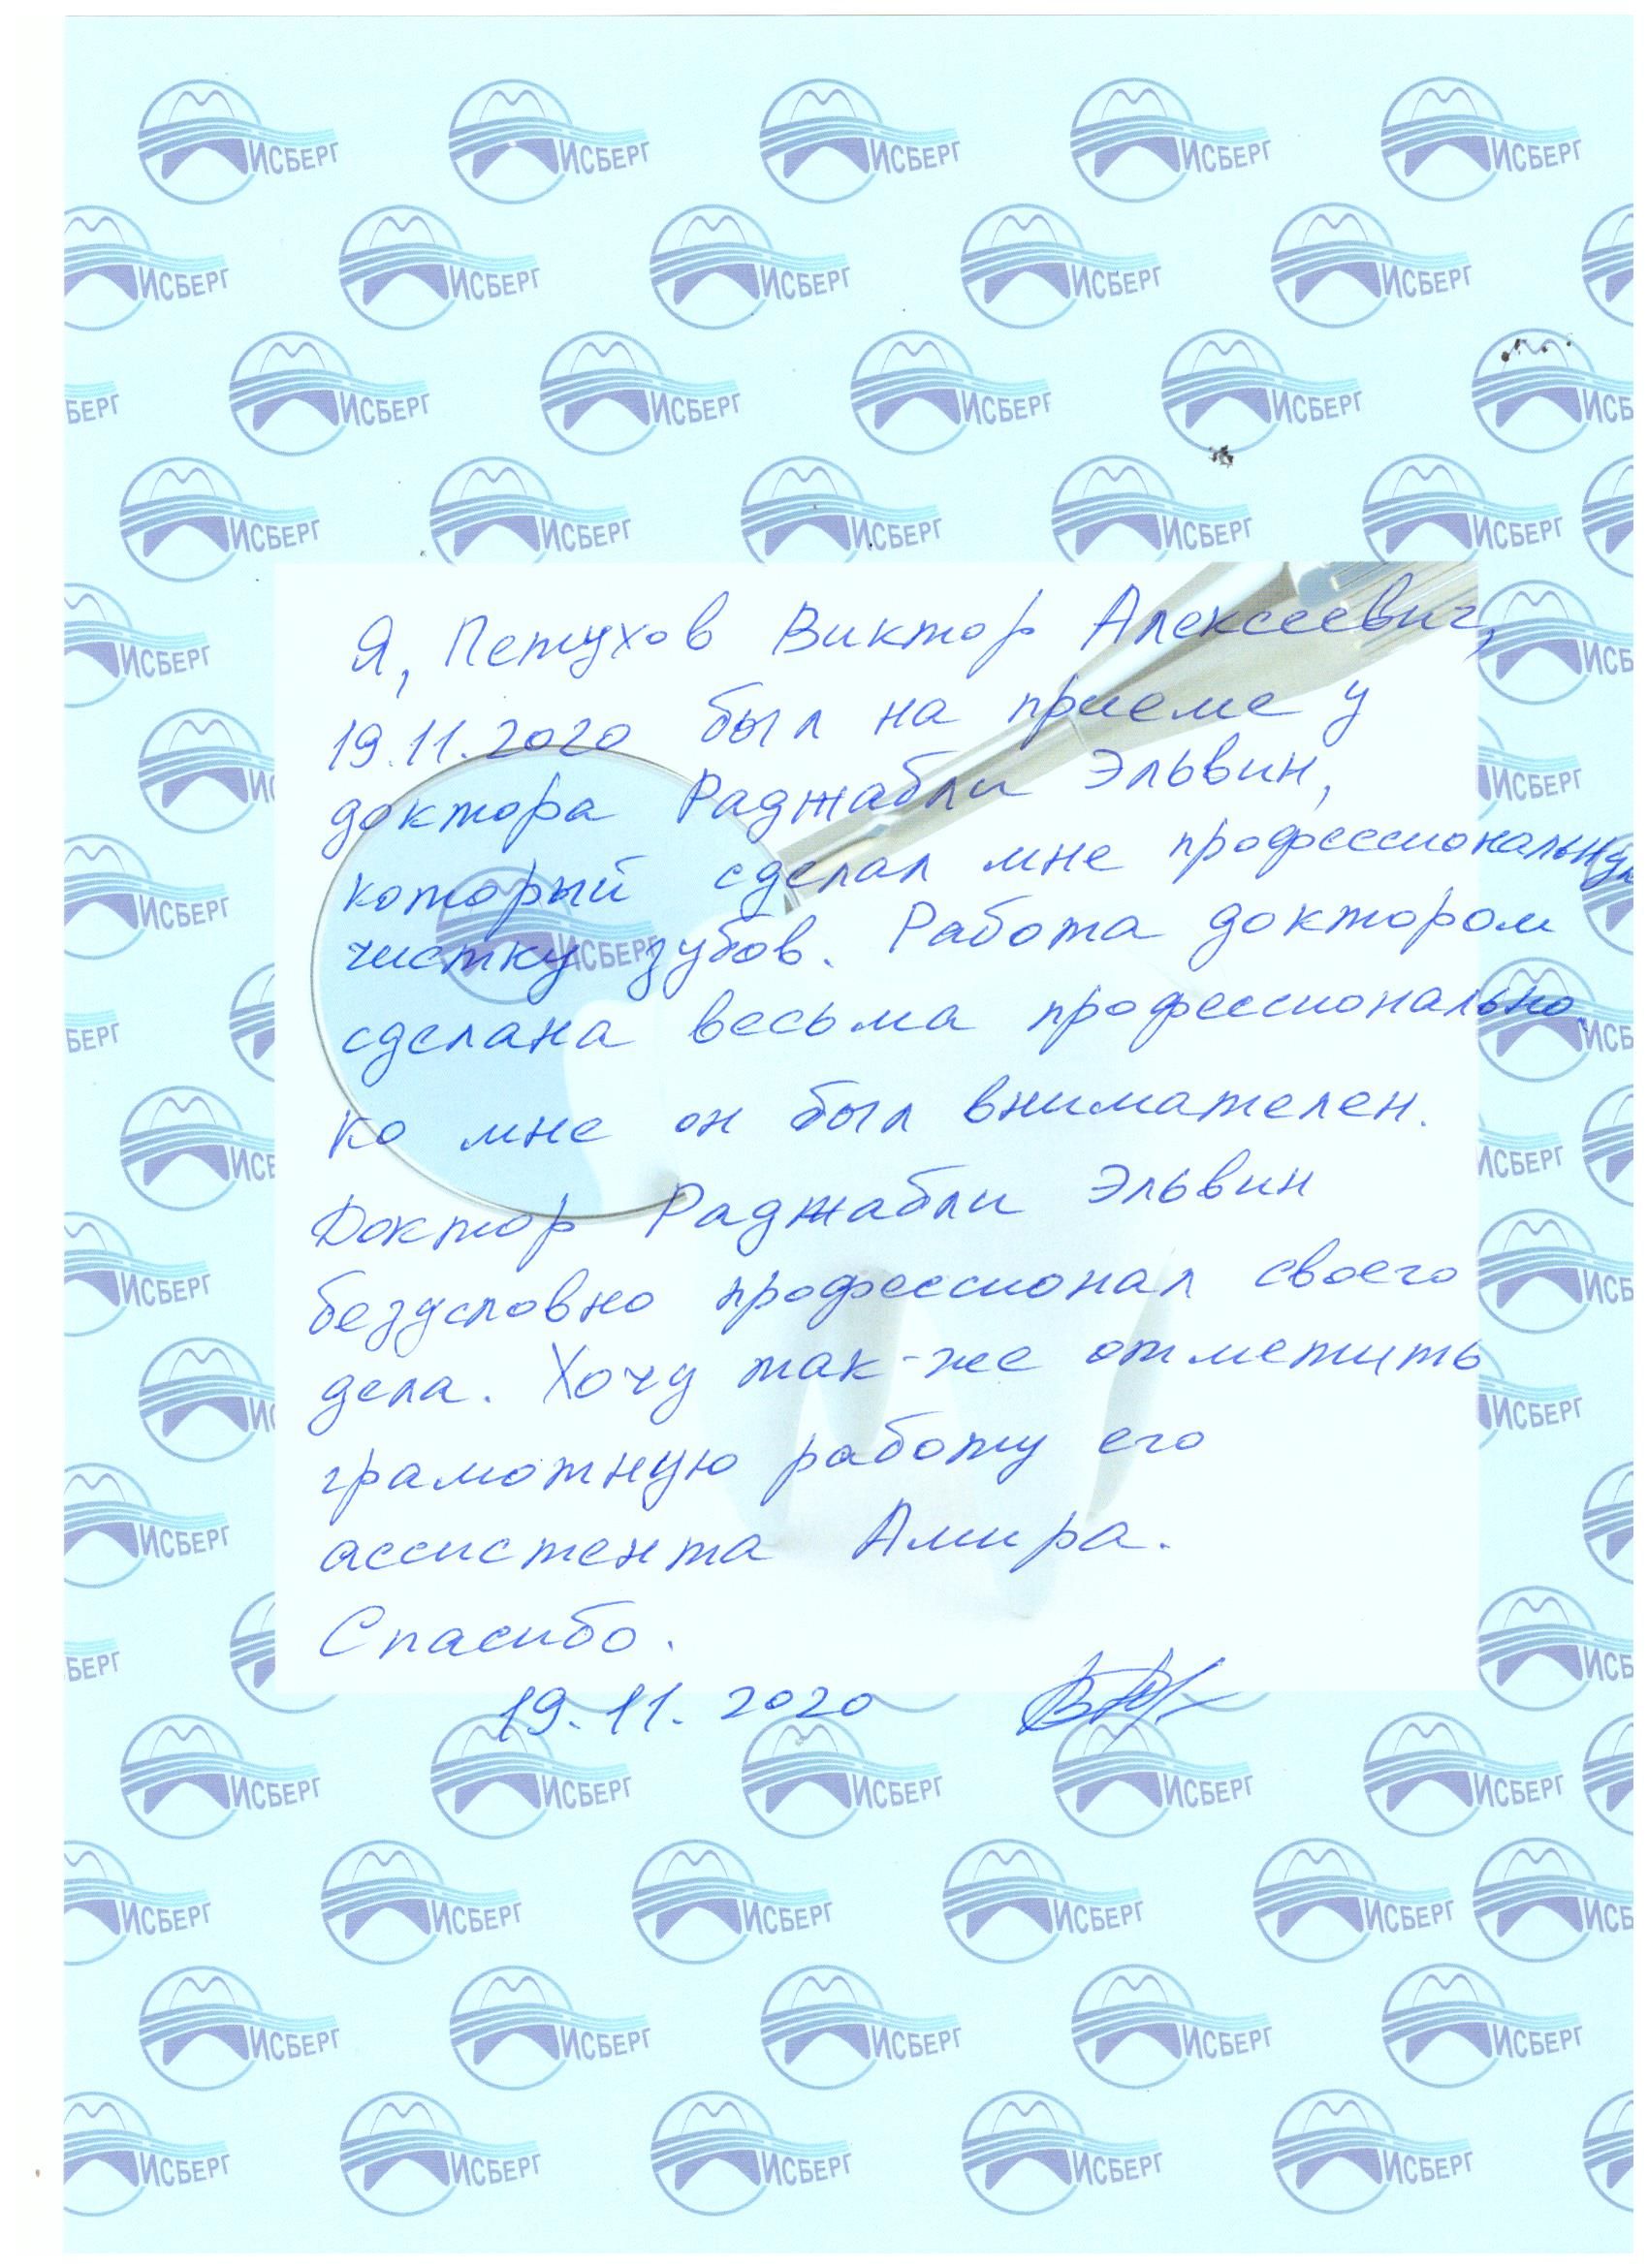 Я, Петухов Виктор Алексеевич,
19.11.2020 был на приеме у
доктора Раджабли Эльвин,
который сделал мне профессиональную
чистку зубов. Работа доктором
сделана весьма профессионально.
Ко мне он был внимателен.
Доктор Раджабли Эльвин
безусловно профессионал своего
дела. Хочу так-же отметить
грамотную работу его
ассистента Амира.
Спасибо.
19.11.2020